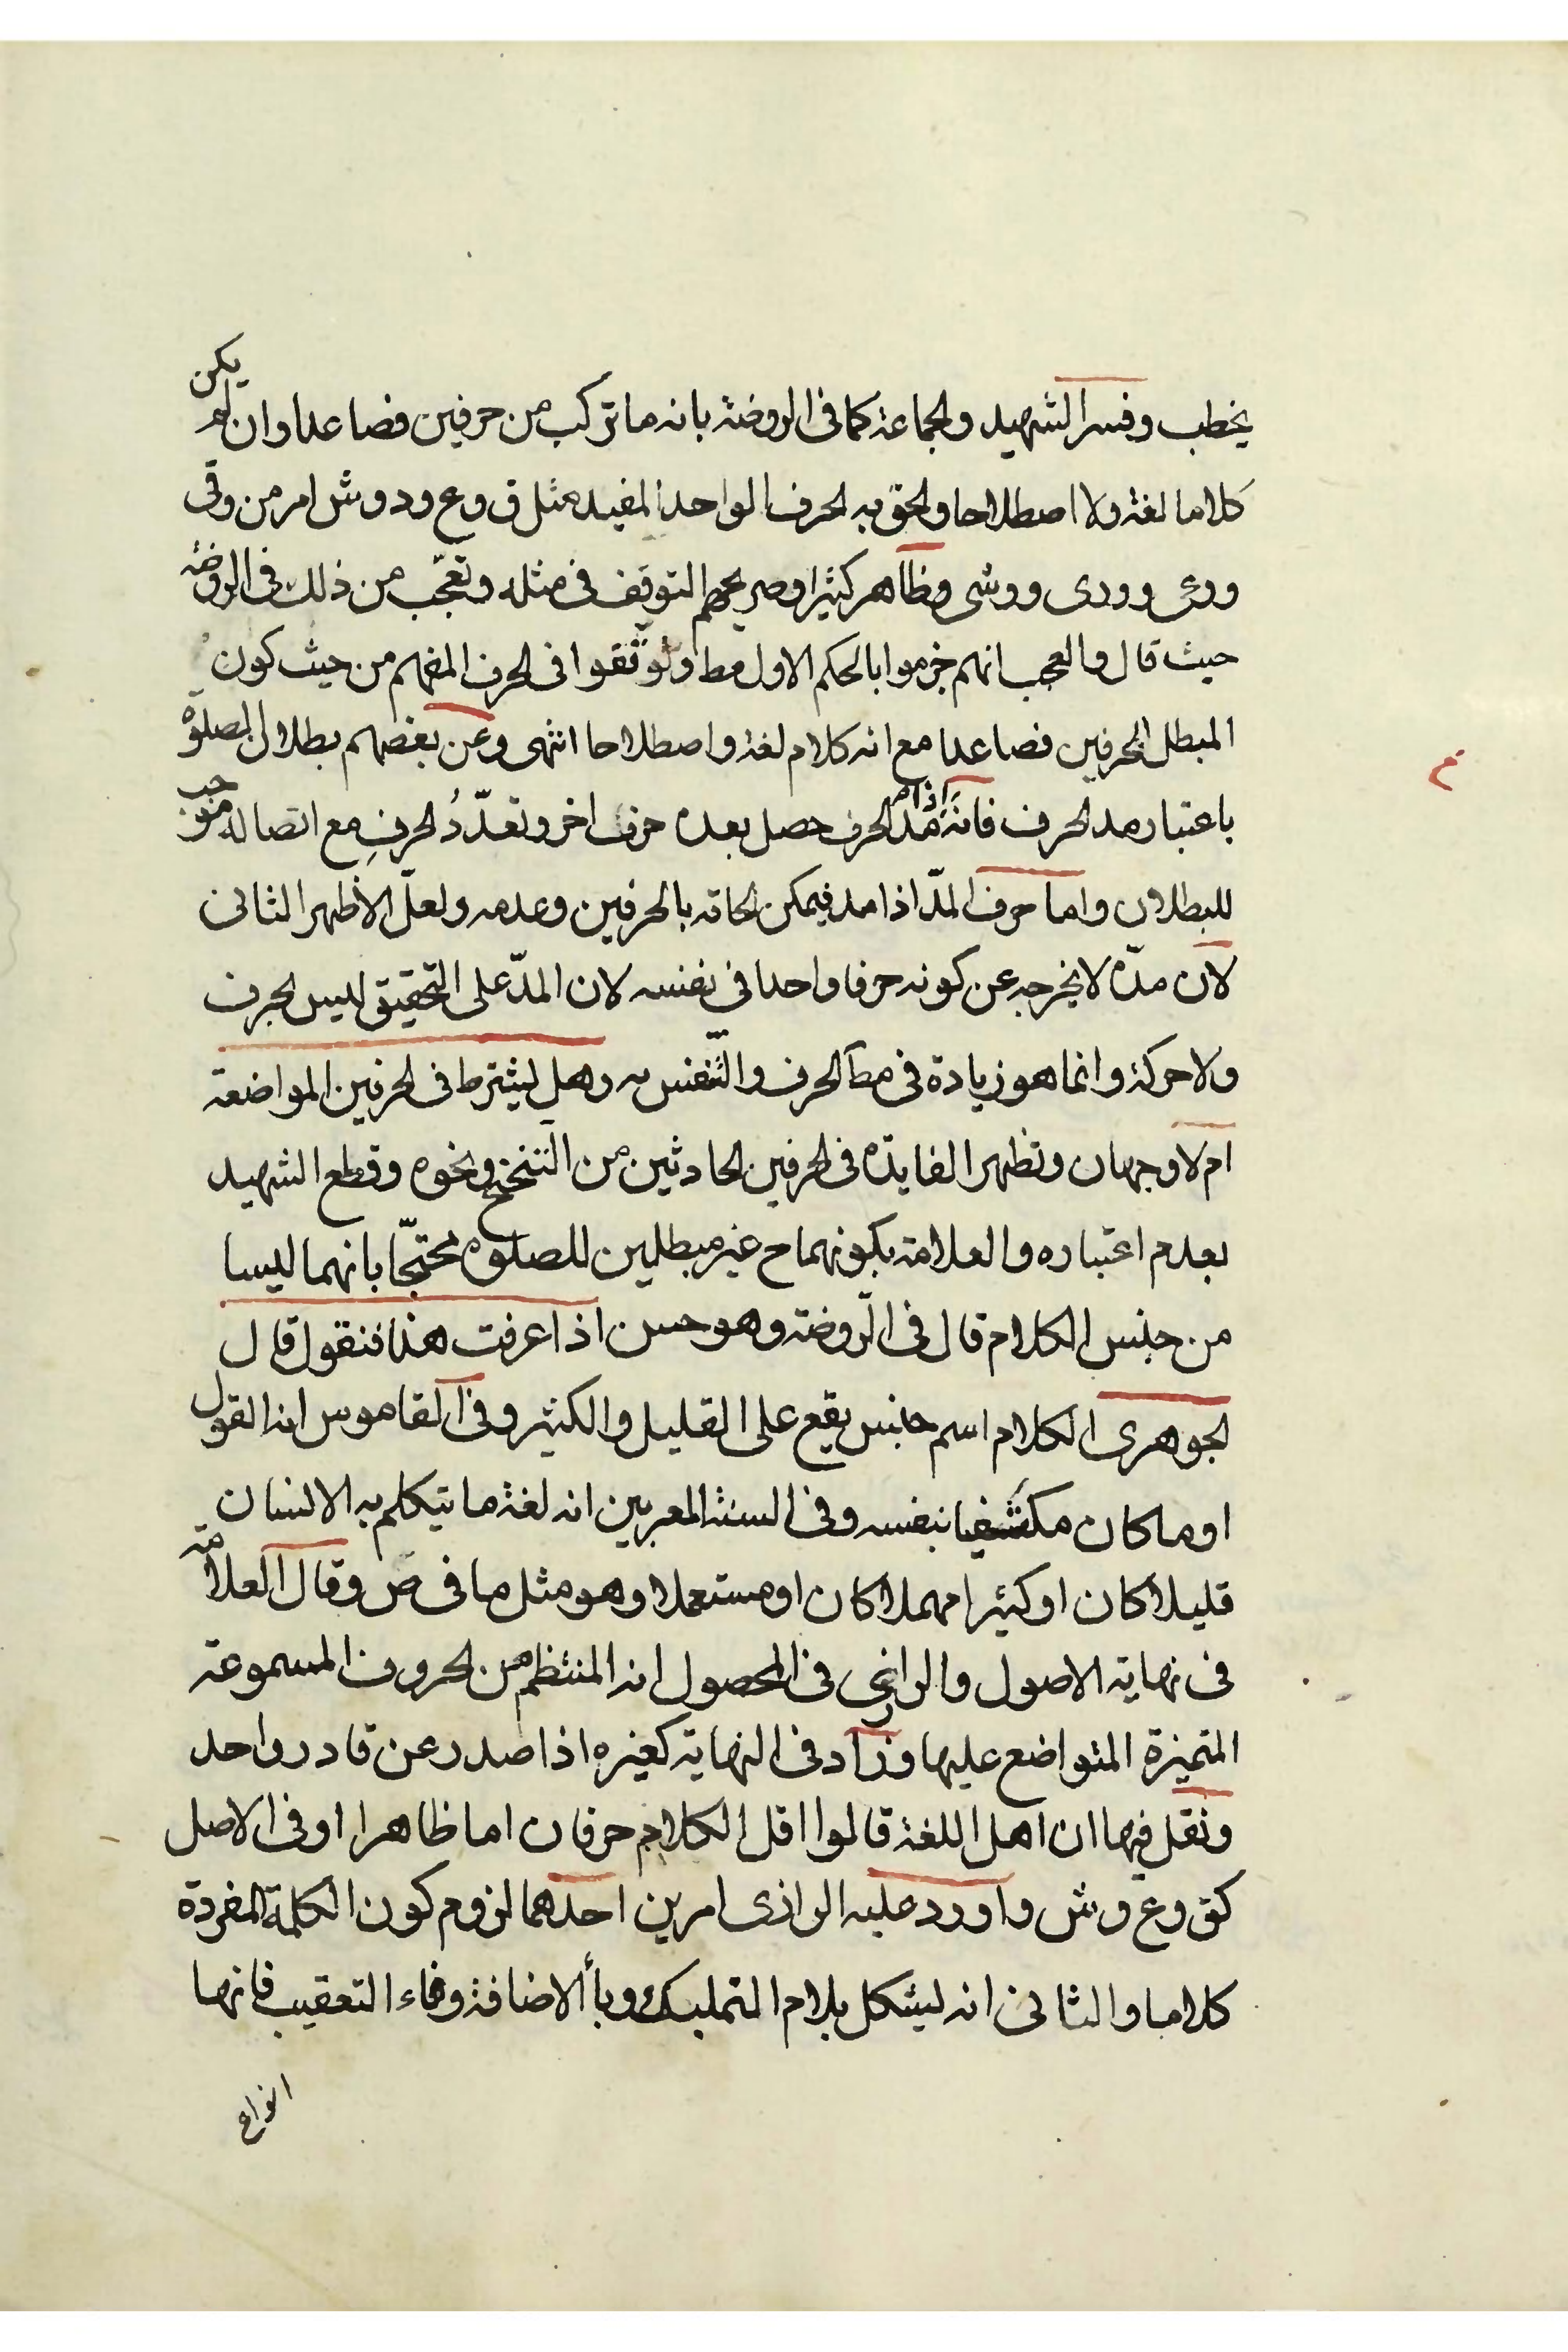 يخطب وفسر الشهيد والجماعة كما في الروضة بانه ما تركب من حرفين فصاعدا وان لم يكن
كلاما لغة ولا اصطلاحا والحق به الحرف الواحد المفيد مثل ق و ع و د و ش امر من وقى
ووعى وودى ووشى وظاهر كثير اوصريحهم التوقف في مثله وتعجّب من ذلك في الروضة
حيث قال والعجب انهم جزموا بالحكم الاول مط وتوقفوا في الحرف المفهم من حيث كون
المبطل الحرفين فصاعدا مع انه كلام لغة واصطلاحا انتهى وعن بعضهم بطلان الصلوة
باعتبار مد الحرف فانه اذا مد الحرف حصل بعده حرف اخر وتعدّدُ الحرفِ مع اتصاله موجب
للبطلان واما حرف المدّ اذا مد فيمكن الحاقه بالحرفين وعدمه ولعلّ الأظهر الثاني
لان مدّه لا يخرجه عن كونه حرفا واحدا في نفسه لان المدّ على التحقيق ليس بحرف
ولا حركة وانما هو زيادة في مط الحرف والنّفس به وهل يشترط في الحرفين المواضعة
ام لا وجهان وتظهر الفايدة في الحرفين الحادثين من التنحنح ونحوه وقطع الشهيد
بعدم اعتباره والعلامة بكونهما ح غير مبطلين للصلوة محتجّا بانهما ليسا
من جنس الكلام قال في الرّوضة وهو حسن اذا عرفت هذا فنقول قال
الجوهرى الكلام اسم جنس يقع على القليل والكثير وفى القاموس انه القول
او ما كان مكتفيا بنفسه وفى السنة المعربين انه لغة ما يتكلم به الانسان
قليلا كان او كثيرا مهملا كان او مستعملا وهو مثل ما في ص وقال العلامة
في نهاية الاصول والرازى في المحصول انه المنتظم من الحروف المسموعة
المتميزة المتواضع عليها وزاد في النهاية كغيره اذا صدر عن قادر واحد
ونقل فيها ان اهل اللغة قالوا اقل الكلام حرفان اما ظاهرا او في الاصل
كق و ع و ش واورد عليه الرازى امرين احدهما لزوم كون الكلمة المفردة
كلاما والثاني انه يشكل بلام التمليك وبأ الاضافة وفاء التعقيب فانها
انواع